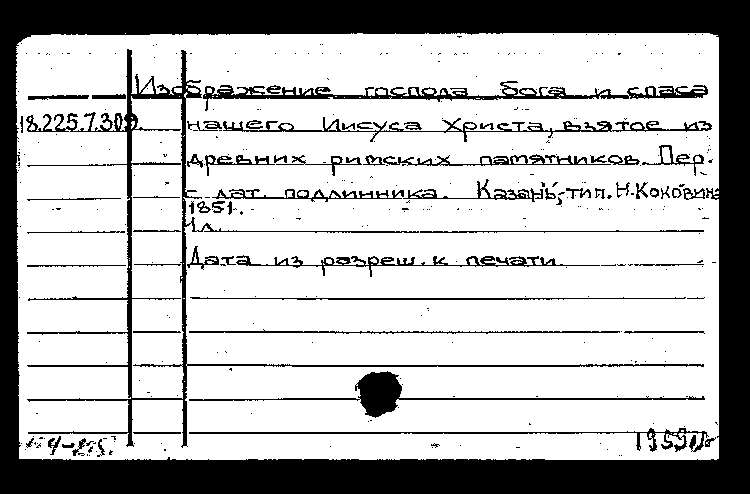 Изображение господа бога и спаса
18.225.7.309. нашего Иисуса Христа, взятое из
древних римских памятников. Пер.
с лат. подлинника. Казань, тип. Н. Коковина
1851.
1 л.
Дата из разреш. к печати.